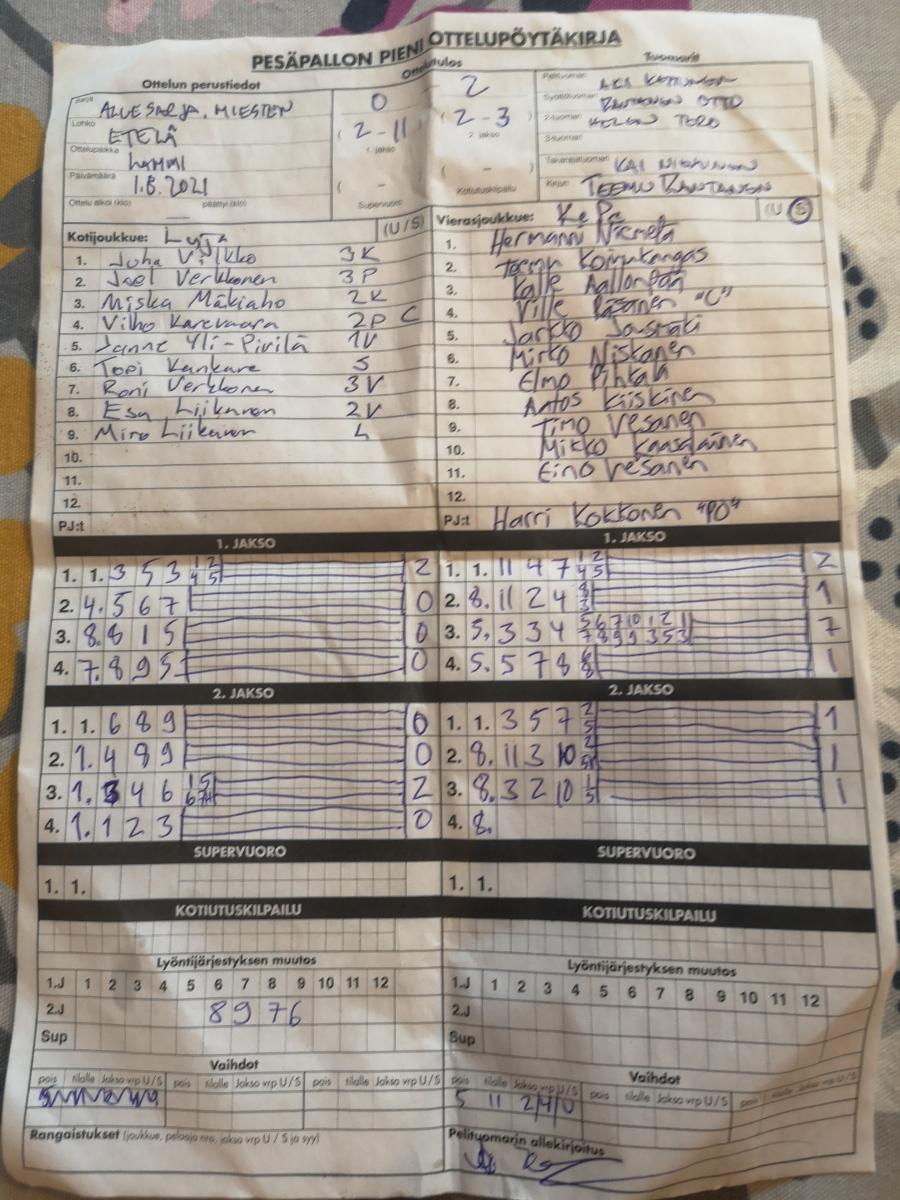 PESÄPALLON PIENI OTTELUPÖYTÄKIRJA
Ottelun perustiedot
Ottelutulos
Tuomarit
Sarja ALUESARJA, MIESTEN
0 - 2
Pelituomari AKI
Lohko ETELÄ
(2-11) (2-3)
1. jakso 2. jakso
Syöttötuomari RANTANEN OTTO
2-tuomari TERO
3-tuomari
Ottelupaikka LAMMI
Takarajatuomari KAI
Päivämäärä 1.8.2021
( - ) ( - )
Supervuoro Kotiutuskilpailu
Kirjuri TEEMU RANTANEN
Ottelu alkoi (klo) päättyi (klo)
Kotijoukkue: (U / S)
1. Juha Vilkko 3K
2. Joel Verkkonen 3P
3. Miska Mäkiaho 2K
4. Vilho Karevaara 2P C
5. Janne Yli-Pirilä 1V
6. Topi Kankare S
7. Roni Verkkonen 3V
8. Esa Liikanen 2V
9. Miro Liikanen L
10.
11.
12.
PJ:t
Vierasjoukkue: KePe (U S)
1. Hermanni Niemelä
2. Teemu Koivukangas
3. Kalle Aallonpää
4. Ville Räsänen "C"
5. Jarkko
6. Mirko Niskanen
7. Elmo Pihkala
8. Antos Kiiskinen
9. Timo Vesanen
10. Mikko Kaasalainen
11. Eino Vesanen
12.
PJ:t Harri Kokkonen "PO"
1. JAKSO
1. 1. 3 5 3 1 2 4 5 2
2. 4. 5 6 7 0
3. 8. 8 1 5 0
4. 7. 8 9 5 0
1. JAKSO
1. 1. 11 4 7 1 2 4 5 2
2. 8. 11 2 4 1
3. 5. 3 3 4 5 6 7 10 1 2 1 7 8 9 9 3 5 3 7
4. 5. 5 7 8 1
2. JAKSO
1. 1. 6 8 9 0
2. 1. 4 8 9 0
3. 1. 3 4 6 1 5 2
4. 1. 1 2 3 0
2. JAKSO
1. 1. 3 5 7 2 5 1
2. 8. 11 3 10 1
3. 8. 3 2 10 1 5 1
4. 8.
SUPERVUORO
1. 1.
SUPERVUORO
1. 1.
KOTIUTUSKILPAILU
KOTIUTUSKILPAILU
Lyöntijärjestyksen muutos
1.J 1 2 3 4 5 6 7 8 9 10 11 12
2.J 8 9 7 6
Sup
Lyöntijärjestyksen muutos
1.J 1 2 3 4 5 6 7 8 9 10 11 12
2.J
Sup
Vaihdot
pois tilalle Jakso vrp U/S pois tilalle Jakso vrp U/S pois tilalle Jakso vrp U/S
Vaihdot
pois tilalle Jakso vrp U/S pois tilalle Jakso vrp U/S pois tilalle Jakso vrp U/S
5 11 2/4/U
Rangaistukset (joukkue, pelaaja nro, jakso vrp U / S ja syy)
Pelituomarin allekirjoitus